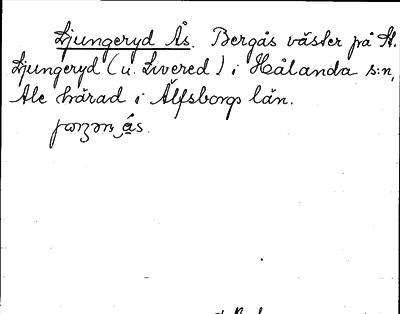 Ljungeryd Ås. Bergås väster på St.
Ljungeryd (u. Livered) i Hålanda s:n,
Ale härad i Älfsborgs län.
ås.